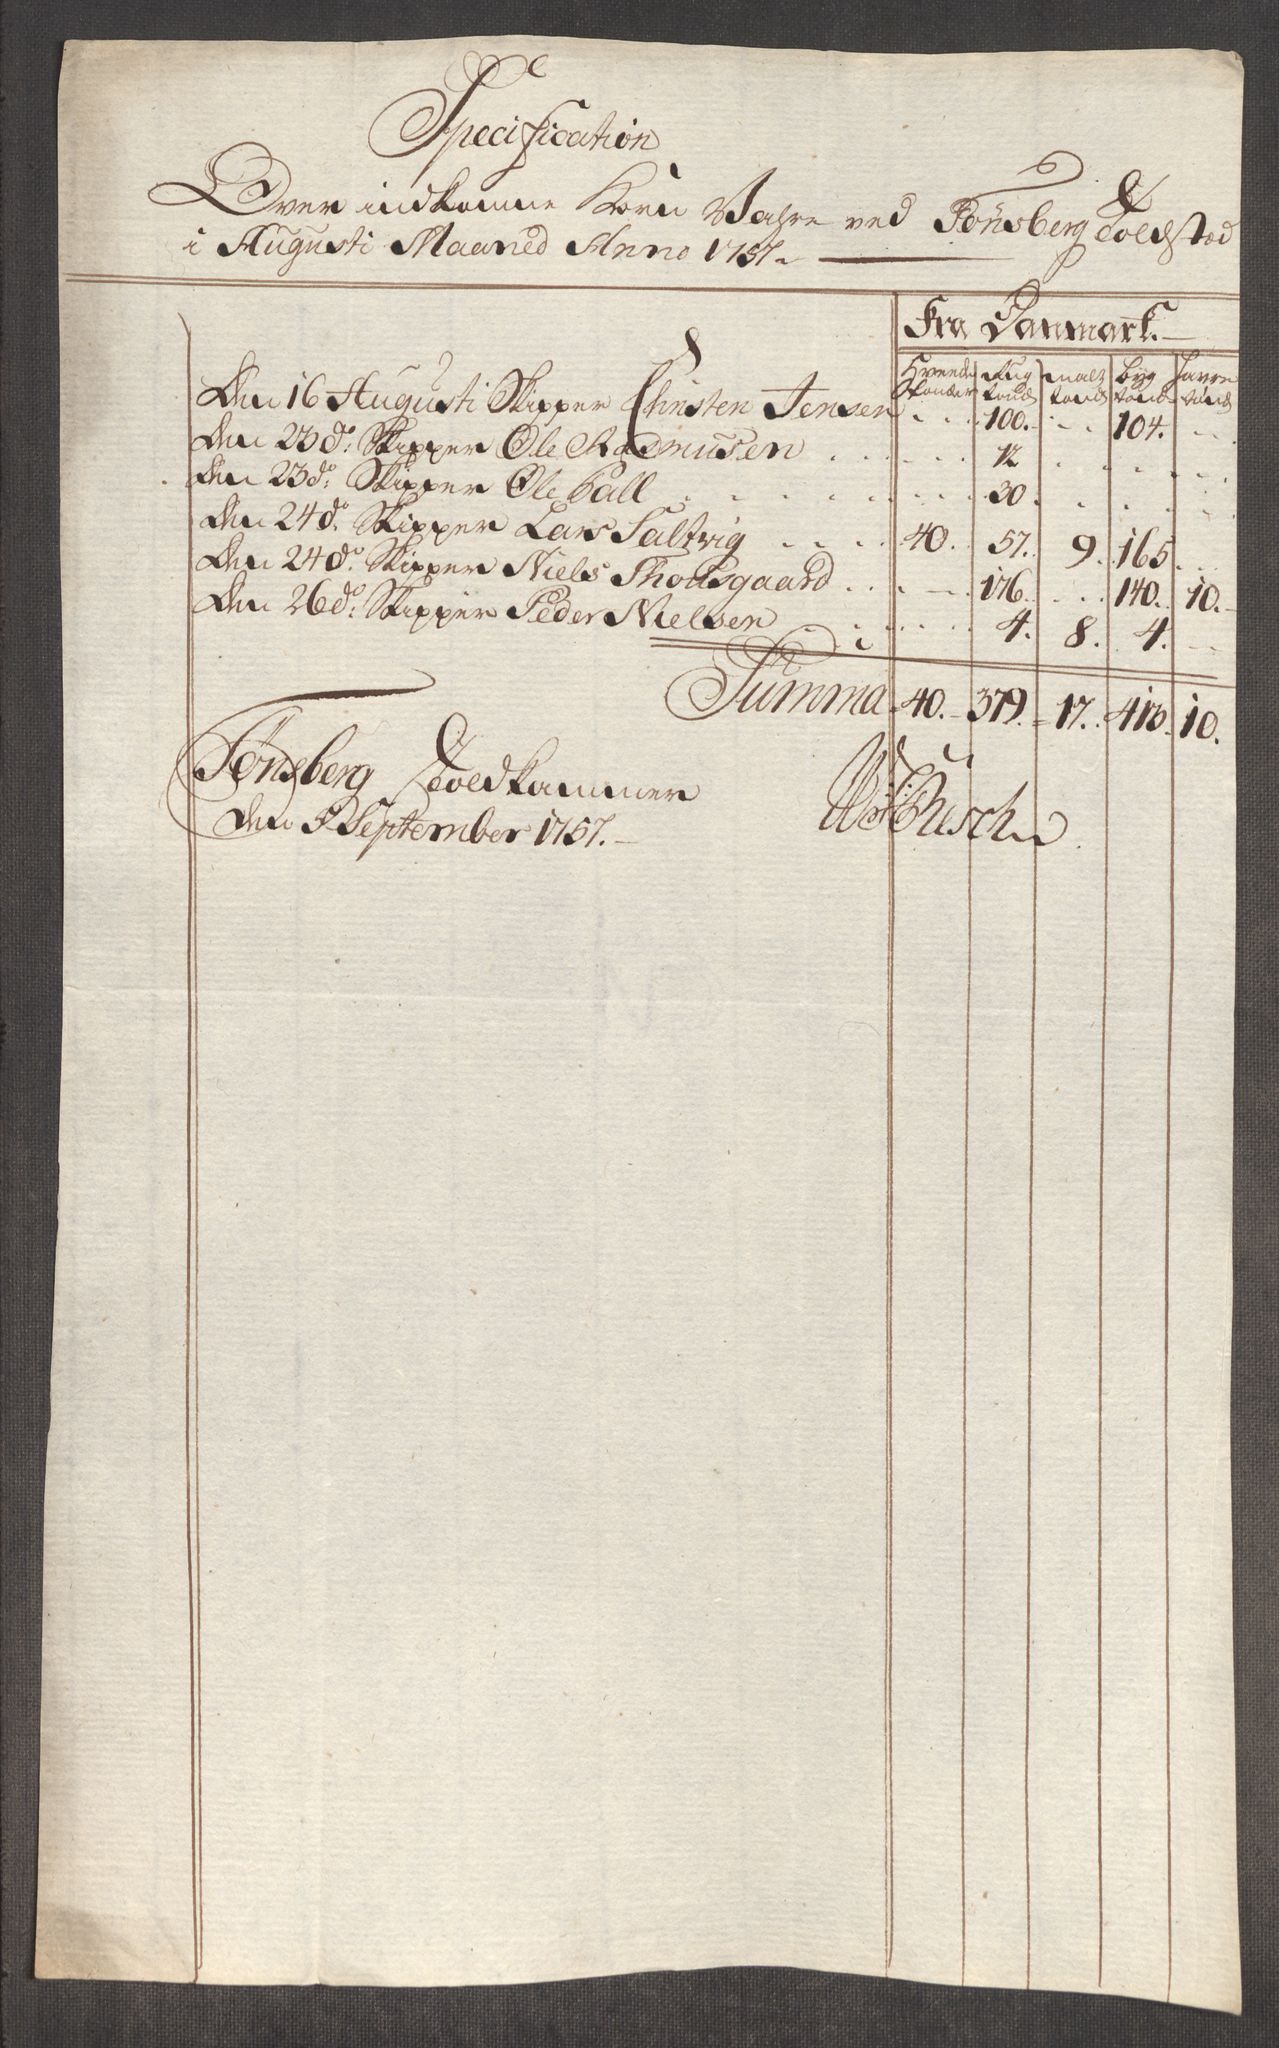 Specification
Over indkomne Korn Vahre ved Tønsberg Toldsted
i Augusti Maaned Anno 1757.
Fra Danmark.
Hveede Rug malt byg Havre
Tønder tønd tønd tønd tønd
Den 16 Augusti Skipper Christen Jensen 100. 104.
Den 23 do. Skipper Ole Rasmusen 12
Den 23 do. Skipper Ole Hall 30.
Den 24 do. Skipper Lars Saltvig 40. 57. 9. 165.
Den 24 do. Skipper Niels Thousgaard 176. 140. 10.
Den 26 do. Skipper Peder Nielsen 4. 8. 4.
Summa 40. 379. 17. 413. 10.
Tønsberg Toldkammer
den 5 September 1757.
Busch